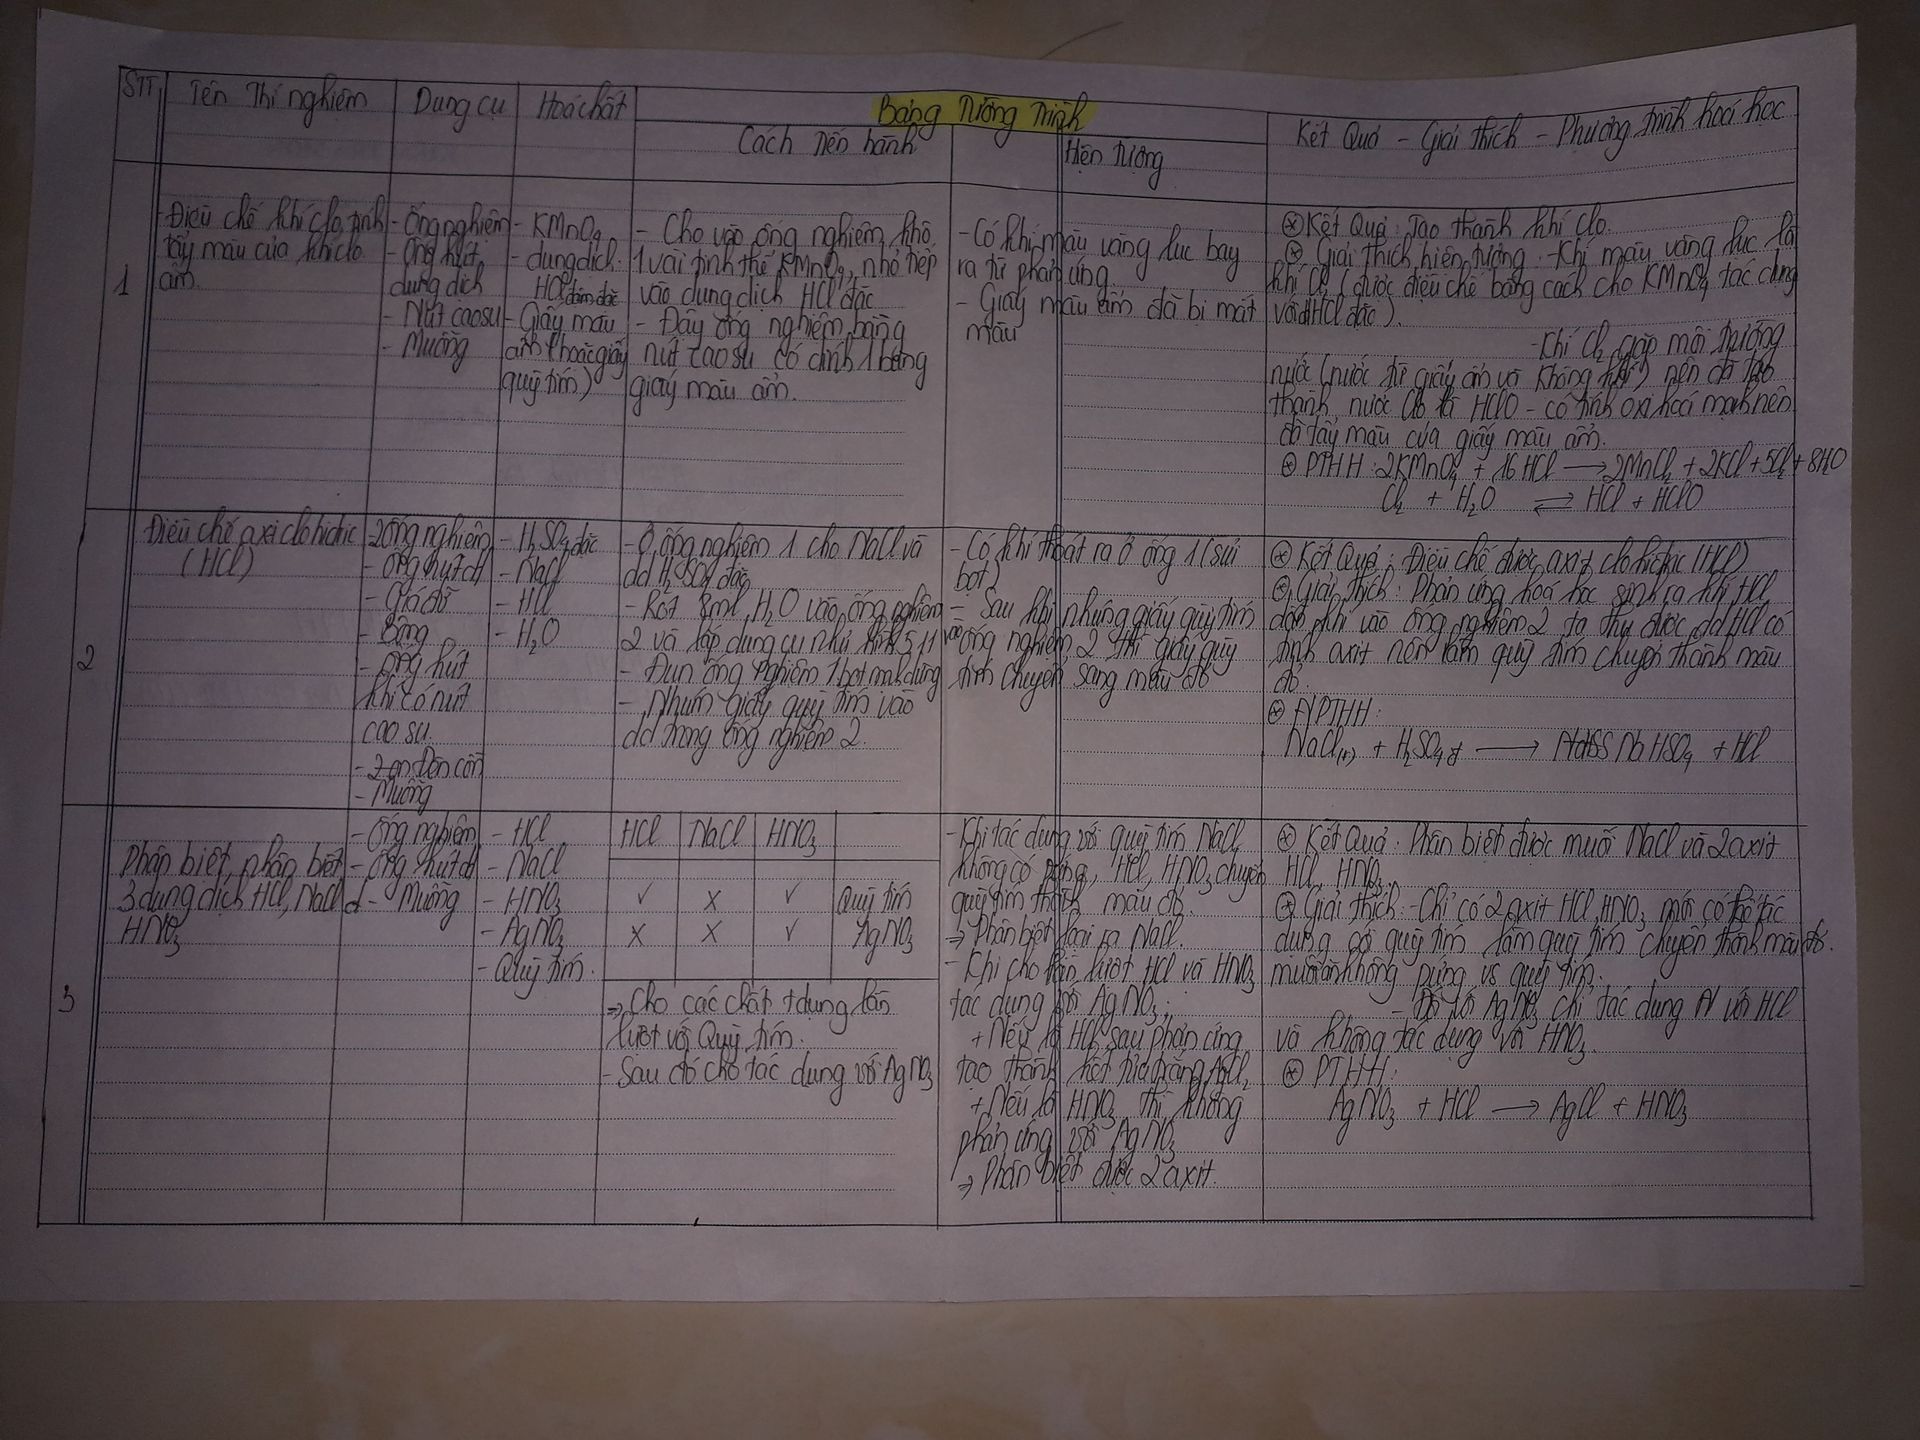 STT
Tên Thí nghiệm
Dụng cụ
Hoá chất
Bảng Tường Trình
Cách Tiến hành
Hiện tượng
Kết Quả - Giải thích - Phương trình hoá học
1
Điều chế khí clo, tính
tẩy màu của khí clo
ẩm.
- Ống nghiệm
- Ống hút
dung dịch
- Nút cao su
- Muỗng
- KMnO4
- dung dịch
HCl đậm đặc
- Giấy màu
ẩm (hoặc giấy
quỳ tím)
- Cho vào ống nghiệm khô
1 vài tinh thể KMnO4, nhỏ tiếp
vào dung dịch HCl đặc
- Đậy ống nghiệm bằng
nút cao su có dính 1 băng
giấy màu ẩm.
- Có khí màu vàng lục bay
ra từ phản ứng.
- Giấy màu ẩm đã bị mất
màu
⊗ Kết Quả: Tạo thành khí clo.
⊗ Giải thích hiện tượng: - Khí màu vàng lục là
khí Cl2 (được điều chế bằng cách cho KMnO4 tác dụng
với dd HCl đặc).
- Khí Cl2 gặp môi trường
nước (nước từ giấy ẩm và không khí) nên đã tạo
thành nước Clo là HClO - có tính oxi hoá mạnh nên
đã tẩy màu của giấy màu ẩm.
⊗ PTHH: 2KMnO4 + 16 HCl ⟶ 2MnCl2 + 2KCl + 5Cl2 + 8H2O
Cl2 + H2O ⇌ HCl + HClO
2
Điều chế axit clohidric
(HCl)
- 2 ống nghiệm
- ống hút dd
- Giá đỡ
- Bông
- ống hút
khí có nút
cao su.
- Đèn cồn
- Muỗng
- H2SO4 đặc
- NaCl
- HCl
- H2O
- Ở ống nghiệm 1 cho NaCl và
dd H2SO4 đặc
- Rót 8ml H2O vào ống nghiệm
2 và lắp dụng cụ như hình 5.11
- Đun ống nghiệm 1 bọt mạnh dừng
- Nhúng giấy quỳ tím vào
dd trong ống nghiệm 2.
- Có khí thoát ra ở ống 1 (sủi
bọt)
- Sau khi nhúng giấy quỳ tím
vào ống nghiệm 2 thì giấy quỳ
tím chuyển sang màu đỏ
⊗ Kết Quả: Điều chế được axit clohidric (HCl)
⊗ Giải thích: Phản ứng hoá học sinh ra khí HCl
dẫn khí vào ống nghiệm 2 ta thu được dd HCl có
tính axit nên làm quỳ tím chuyển thành màu
đỏ.
⊗ PTHH:
NaCl(r) + H2SO4 đ ⟶ NaHSO4 + HCl
3
Phân biệt, nhận biết
3 dung dịch HCl, NaCl
HNO3
- Ống nghiệm
- ống hút dd
- Muỗng
- HCl
- NaCl
- HNO3
- AgNO3
- Quỳ tím.
HCl NaCl HNO3
✓ x ✓ Quỳ tím
x x ✓ AgNO3
⇒ Cho các chất t dụng lần
lượt với Quỳ tím.
- Sau đó cho tác dụng với AgNO3
- Khi tác dụng với quỳ tím NaCl
không có pứng, HCl, HNO3 chuyển
quỳ tím thành màu đỏ.
⇒ Phân biệt loại ra NaCl.
- Khi cho lần lượt HCl và HNO3
tác dụng với AgNO3:
+ Nếu là HCl sau phản ứng
tạo thành kết tủa trắng AgCl2
+ Nếu là HNO3 thì không
phản ứng với AgNO3
⇒ Phân biệt được 2 axit.
⊗ Kết Quả: Phân biệt được muối NaCl và 2 axit
HCl, HNO3.
⊗ Giải thích: - Chỉ có 2 axit HCl, HNO3 mới có thể tác
dụng với quỳ tím làm quỳ tím chuyển thành màu đỏ.
muối ăn không pứng vs quỳ tím.
- Đối với AgNO3 chỉ tác dụng với HCl
và không tác dụng với HNO3.
⊗ PTHH:
AgNO3 + HCl ⟶ AgCl + HNO3